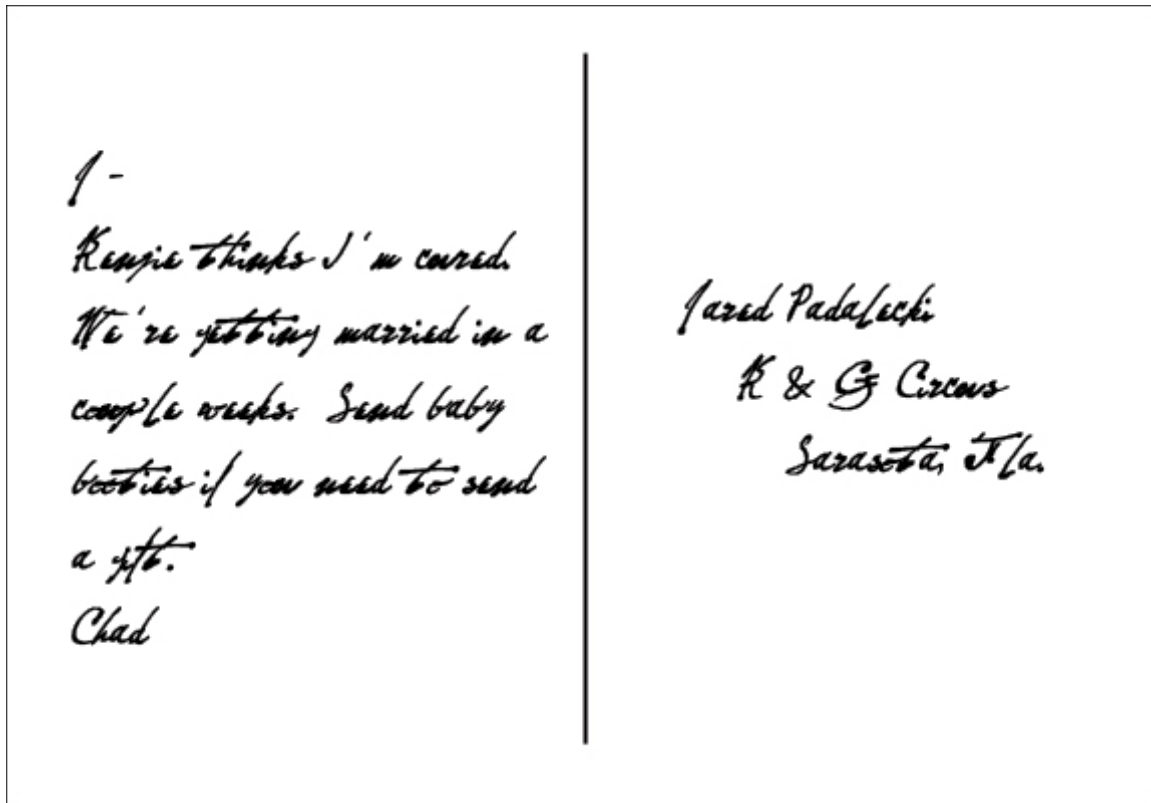 J -
Kenzie thinks I'm cured.
We're getting married in a
couple weeks. Send baby
booties if you need to send
a gift.
Chad
Jared Padalecki
K & G Circus
Sarasota, Fla.